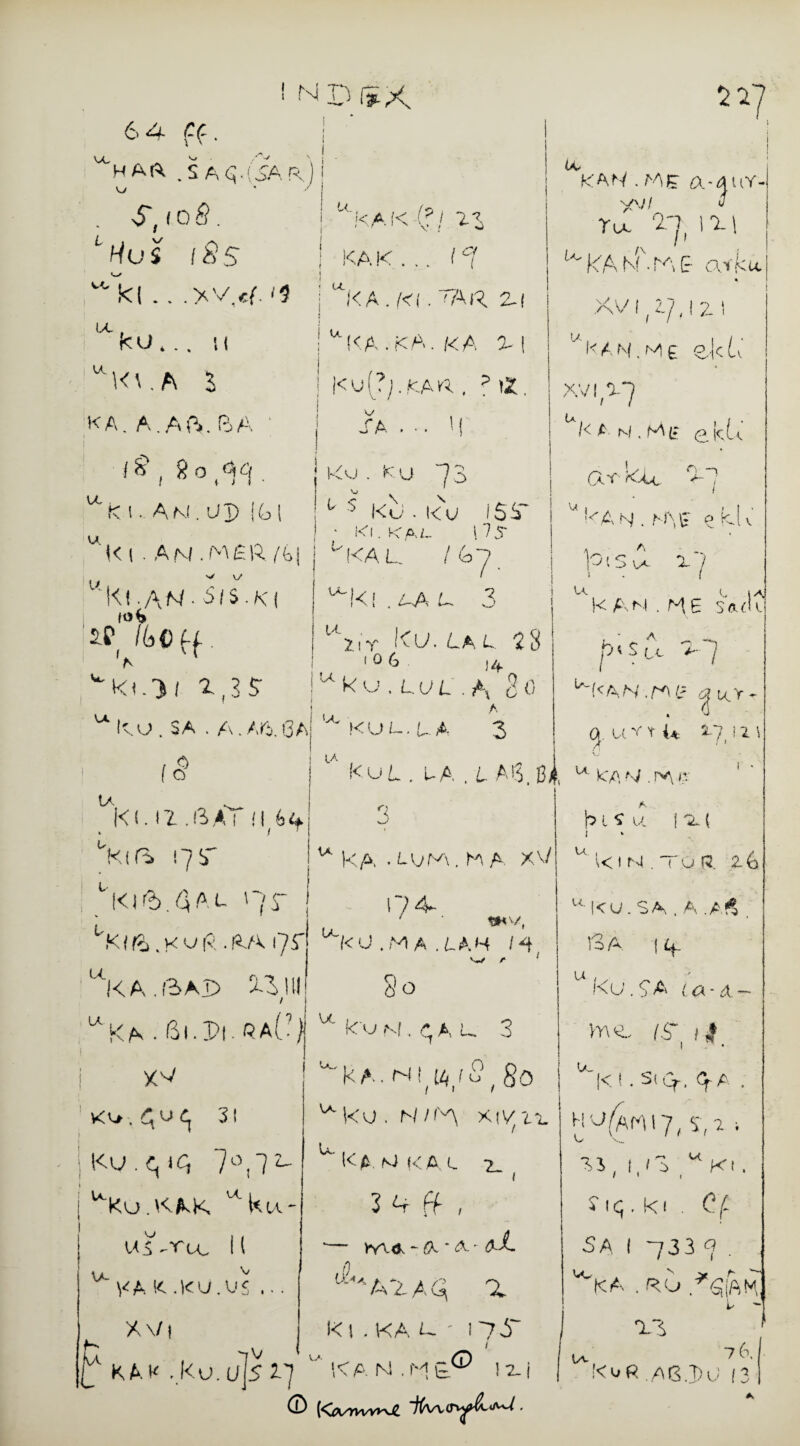 INDEX 227
64 ff.
ᵘHAR.ŠAG.(ŠAR)
5,108.
ᴸHuš 185
ᵘki...XV, cf. 19
ᵘku... 11
ᵘKI.A 3
KA.A.AB.BA
18, 80, 99.
ᵘKI.AN.UD 161
ᵘKI.AN.MER 161
ᵘKI.AN.ŠIŠ.KI
106
160 ff.
ᵘKI.31 2,35
ᵘKU.SA.A.AB.BA
18
ᵘKI.IZ.BAT 11,64
ᴸKIB 175
ᴸKIB.GAL 175
ᴸKIB.KUR.RA 175
ᵘKA.BAD 23,111
ᵘKA.BI.DI.RA(?)
XV
KU.GUG 31
KU.GIG 70,72
ᵘKU.KAK ᵘku-
uš-ru 11
ᵘKAK.KU.UŠ...
XVI
ᵘKAK.KU.U]Š 27
ᵘKAK(?) 23
KAK... 19
ᵘKA.KI.TAR 21
ᵘKA.KA.KA 21
KU(?).KAR, ? IZ.
ŠA... 11
KU.KU 73
ᴸ Š KU.KU 155
KI.KAL 175
ᴸKAL 167
ᵘKI.LAL 3
ᵘzir KU.LAL 28
106 14
ᵘKU.LUL.A 80
ᵘKUL.LA 3
ᵘKUL.LA.LAB.BA
3
ᵘKA.LUM.MA XV
174
ᵘKU.MA.LAH 14,
80
ᵘKUN.GAL 3
ᵘKA.NI, 14,18,80
ᵘKU.NIM XIV,22
ᵘKAN KAL 2,
34 ff,
— ma-a-a-al
AZAG 2
KI.KAL - 175
ᵘKAN.ME① 121
ᵘKAN.ME a-gur-
XVI
ru 27, 121
ᵘKAN.ME arku
XVI,27,121
ᵘKAN.ME ekli
XVI,27
ᵘKAN.ME ekli
arku 27
ᵘKAN.ME ekli
pisû 27
ᵘKAN.ME šadî
pisû 27
ᵘKAN.ME gur-
gurru 27,121
ᵘKAN.ME
pisû 121
ᵘKIN.TUR 26
ᵘKU.SA.A.AB.
BA 14
ᵘKU.SA la-a-
me 15, 18.
ᵘKI.SIG.GA.
HU(AM 17,5,2;
33, 1,13, ᵘKI.
SIG.KI. Cf
SA I 7339.
ᵘKA.RU.*G[AM]
23
76,
ᵘKUR.AB.DU 13
①